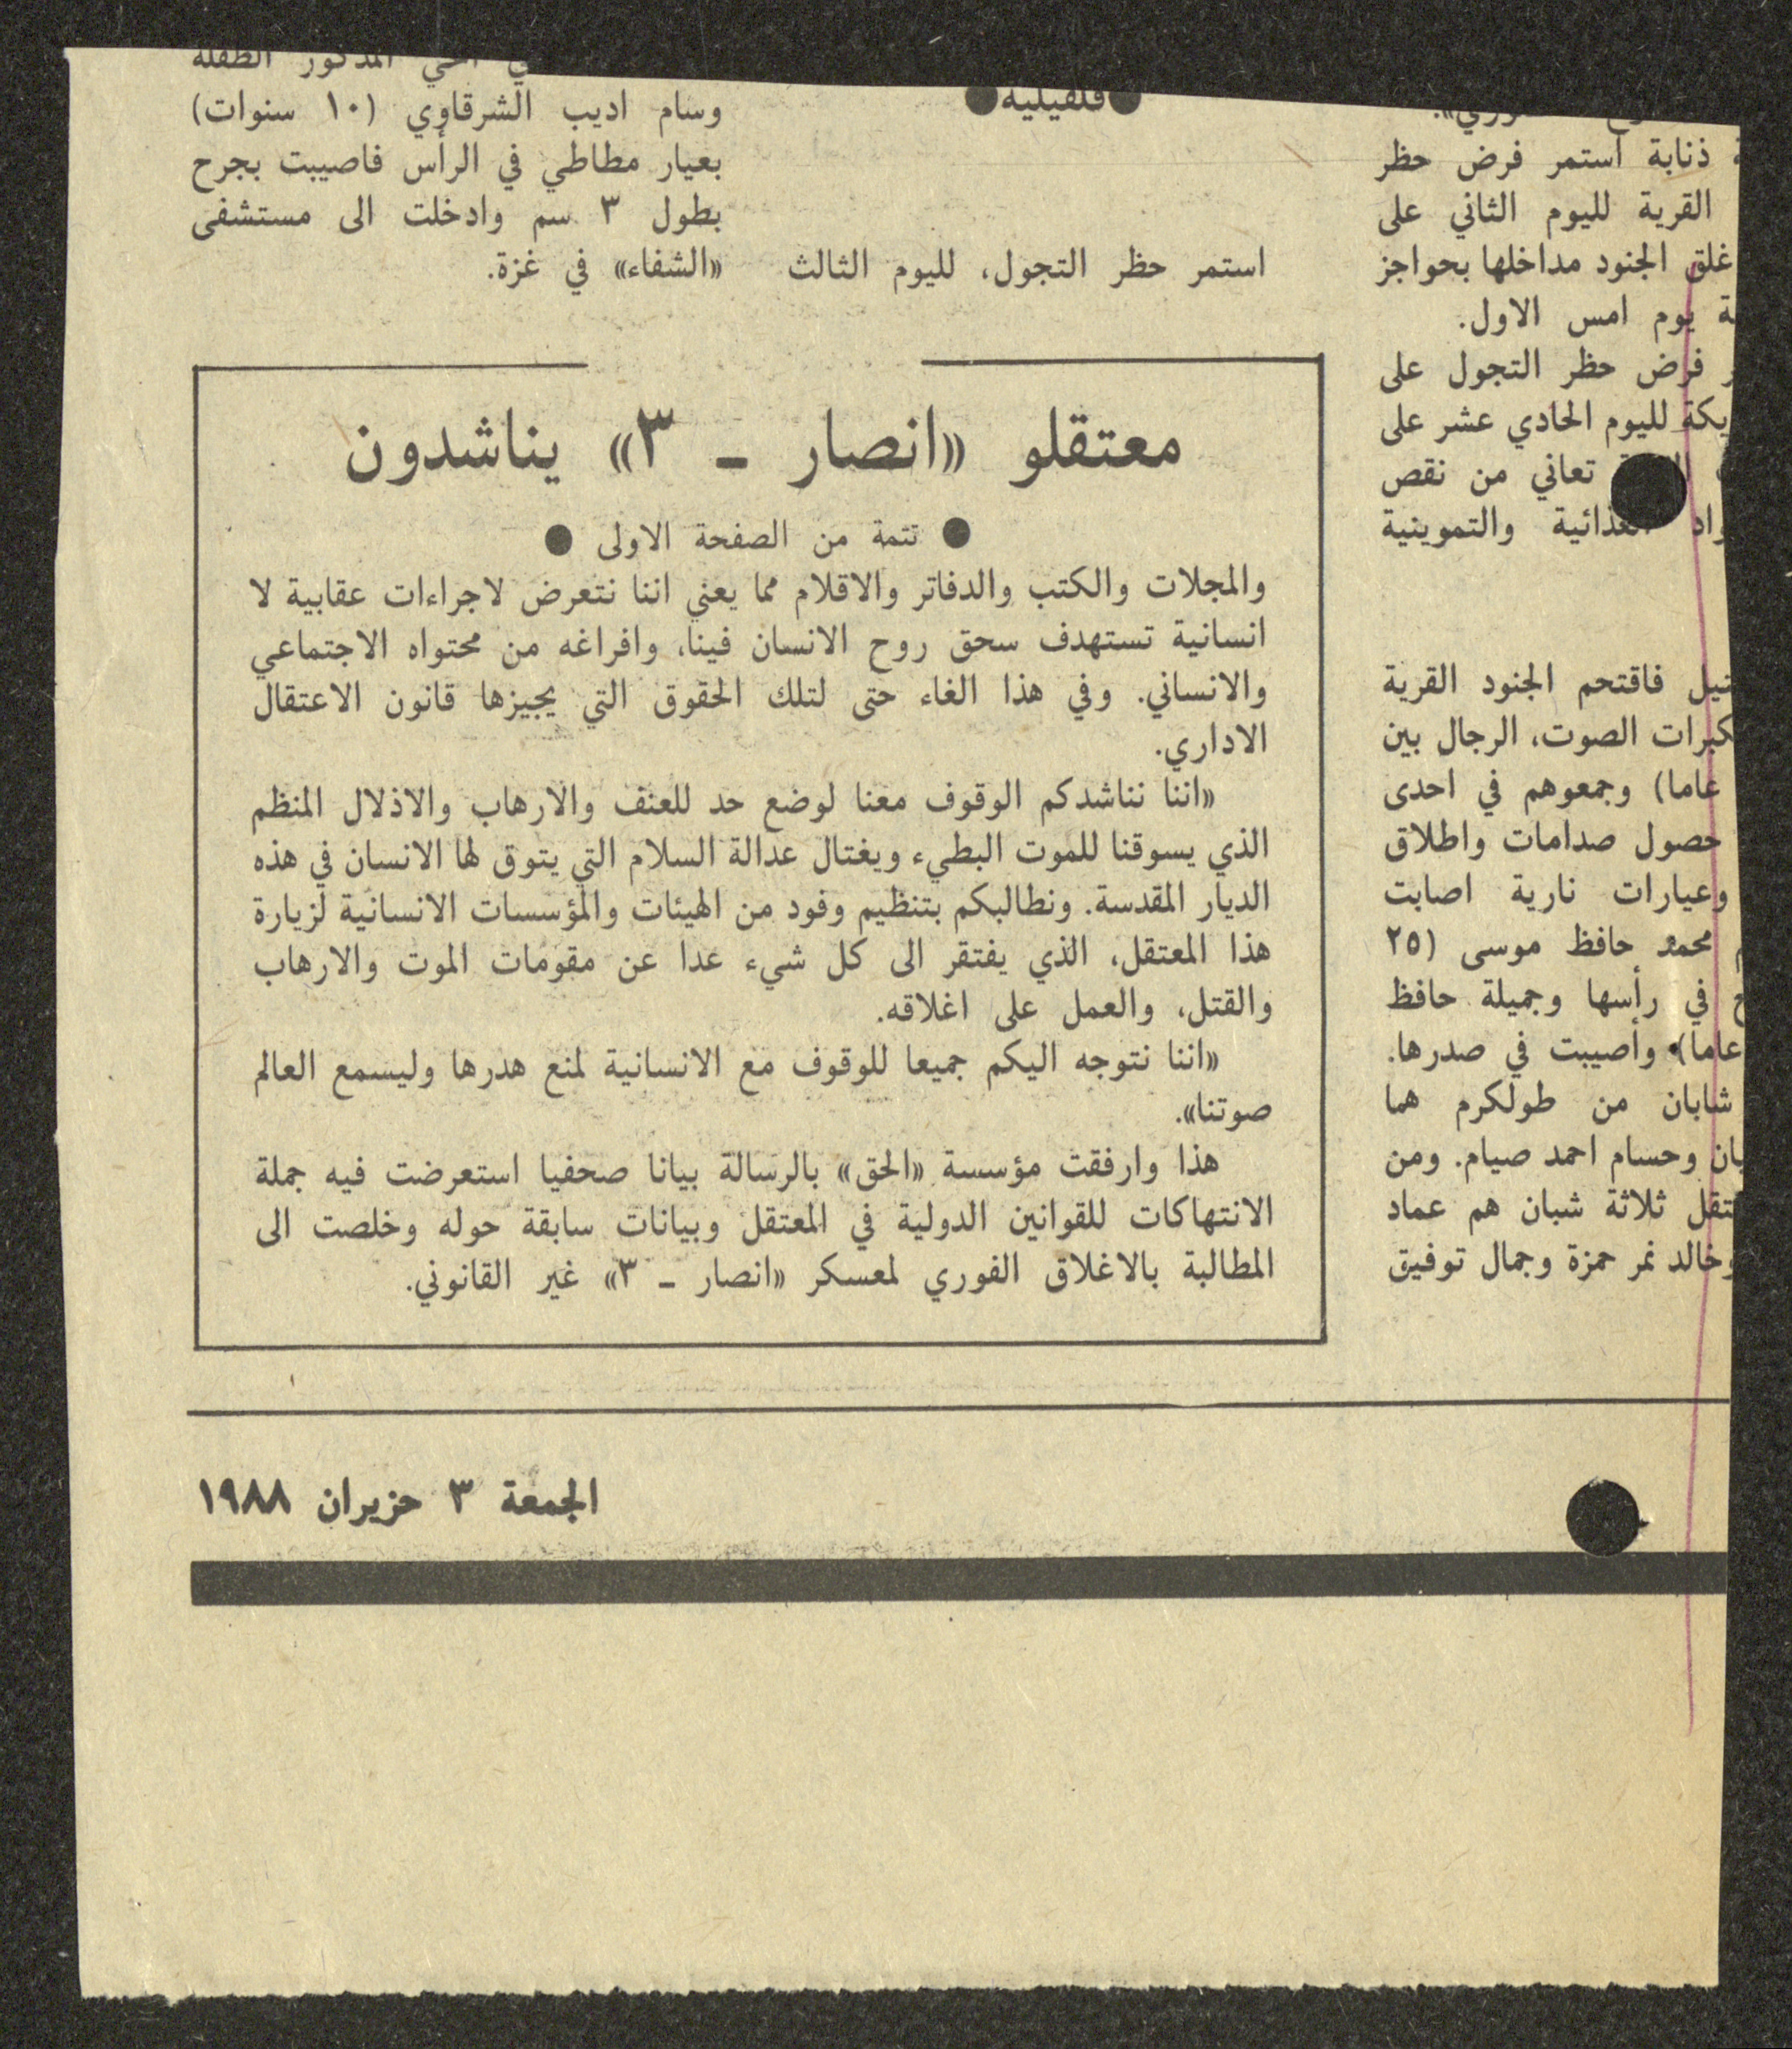 ذنابة استمر فرض حظر
القرية لليوم الثاني على
غلق الجنود مداخلها بحواجز
يوم امس الاول.
فرض حظر التجول على
لليوم الحادي عشر على
تعاني من نقص
الغذائية والتموينية
فاقتحم الجنود القرية
الصوت، الرجال بين
عاما) وجمعوهم في احدى
حصول صدامات واطلاق
وعيارات نارية اصابت
محمد حافظ موسى (٢٥
في رأسها وجميلة حافظ
عاما) وأصيبت في صدرها.
شابان من طولكرم هما
وحسام احمد صيام. ومن
ثلاثة شبان هم عماد
وخالد نمر حمزة وجمال توفيق
●قلقيلية●
استمر حظر التجول، لليوم الثالث
المذكور الطفلة
وسام اديب الشرقاوي (١٠ سنوات)
بعيار مطاطي في الرأس فاصيبت بجرح
بطول ٣ سم وادخلت الى مستشفى
«الشفاء» في غزة.
معتقلو «انصار ـ ٣» يناشدون
● تتمة من الصفحة الاولى ●
والمجلات والكتب والدفاتر والاقلام مما يعني اننا نتعرض لاجراءات عقابية لا
انسانية تستهدف سحق روح الانسان فينا، وافراغه من محتواه الاجتماعي
والانساني. وفي هذا الغاء حتى لتلك الحقوق التي يجيزها قانون الاعتقال
الاداري.
«اننا نناشدكم الوقوف معنا لوضع حد للعنف والارهاب والاذلال المنظم
الذي يسوقنا للموت البطيء ويغتال عدالة السلام التي يتوق لها الانسان في هذه
الديار المقدسة. ونطالبكم بتنظيم وفود من الهيئات والمؤسسات الانسانية لزيارة
هذا المعتقل، الذي يفتقر الى كل شيء عدا عن مقومات الموت والارهاب
والقتل، والعمل على اغلاقه.
«اننا نتوجه اليكم جميعا للوقوف مع الانسانية لمنع هدرها وليسمع العالم
صوتنا».
هذا وارفقت مؤسسة «الحق» بالرسالة بيانا صحفيا استعرضت فيه جملة
الانتهاكات للقوانين الدولية في المعتقل وبيانات سابقة حوله وخلصت الى
المطالبة بالاغلاق الفوري لمعسكر «انصار ـ ٣» غير القانوني.
الجمعة ٣ حزيران ١٩٨٨